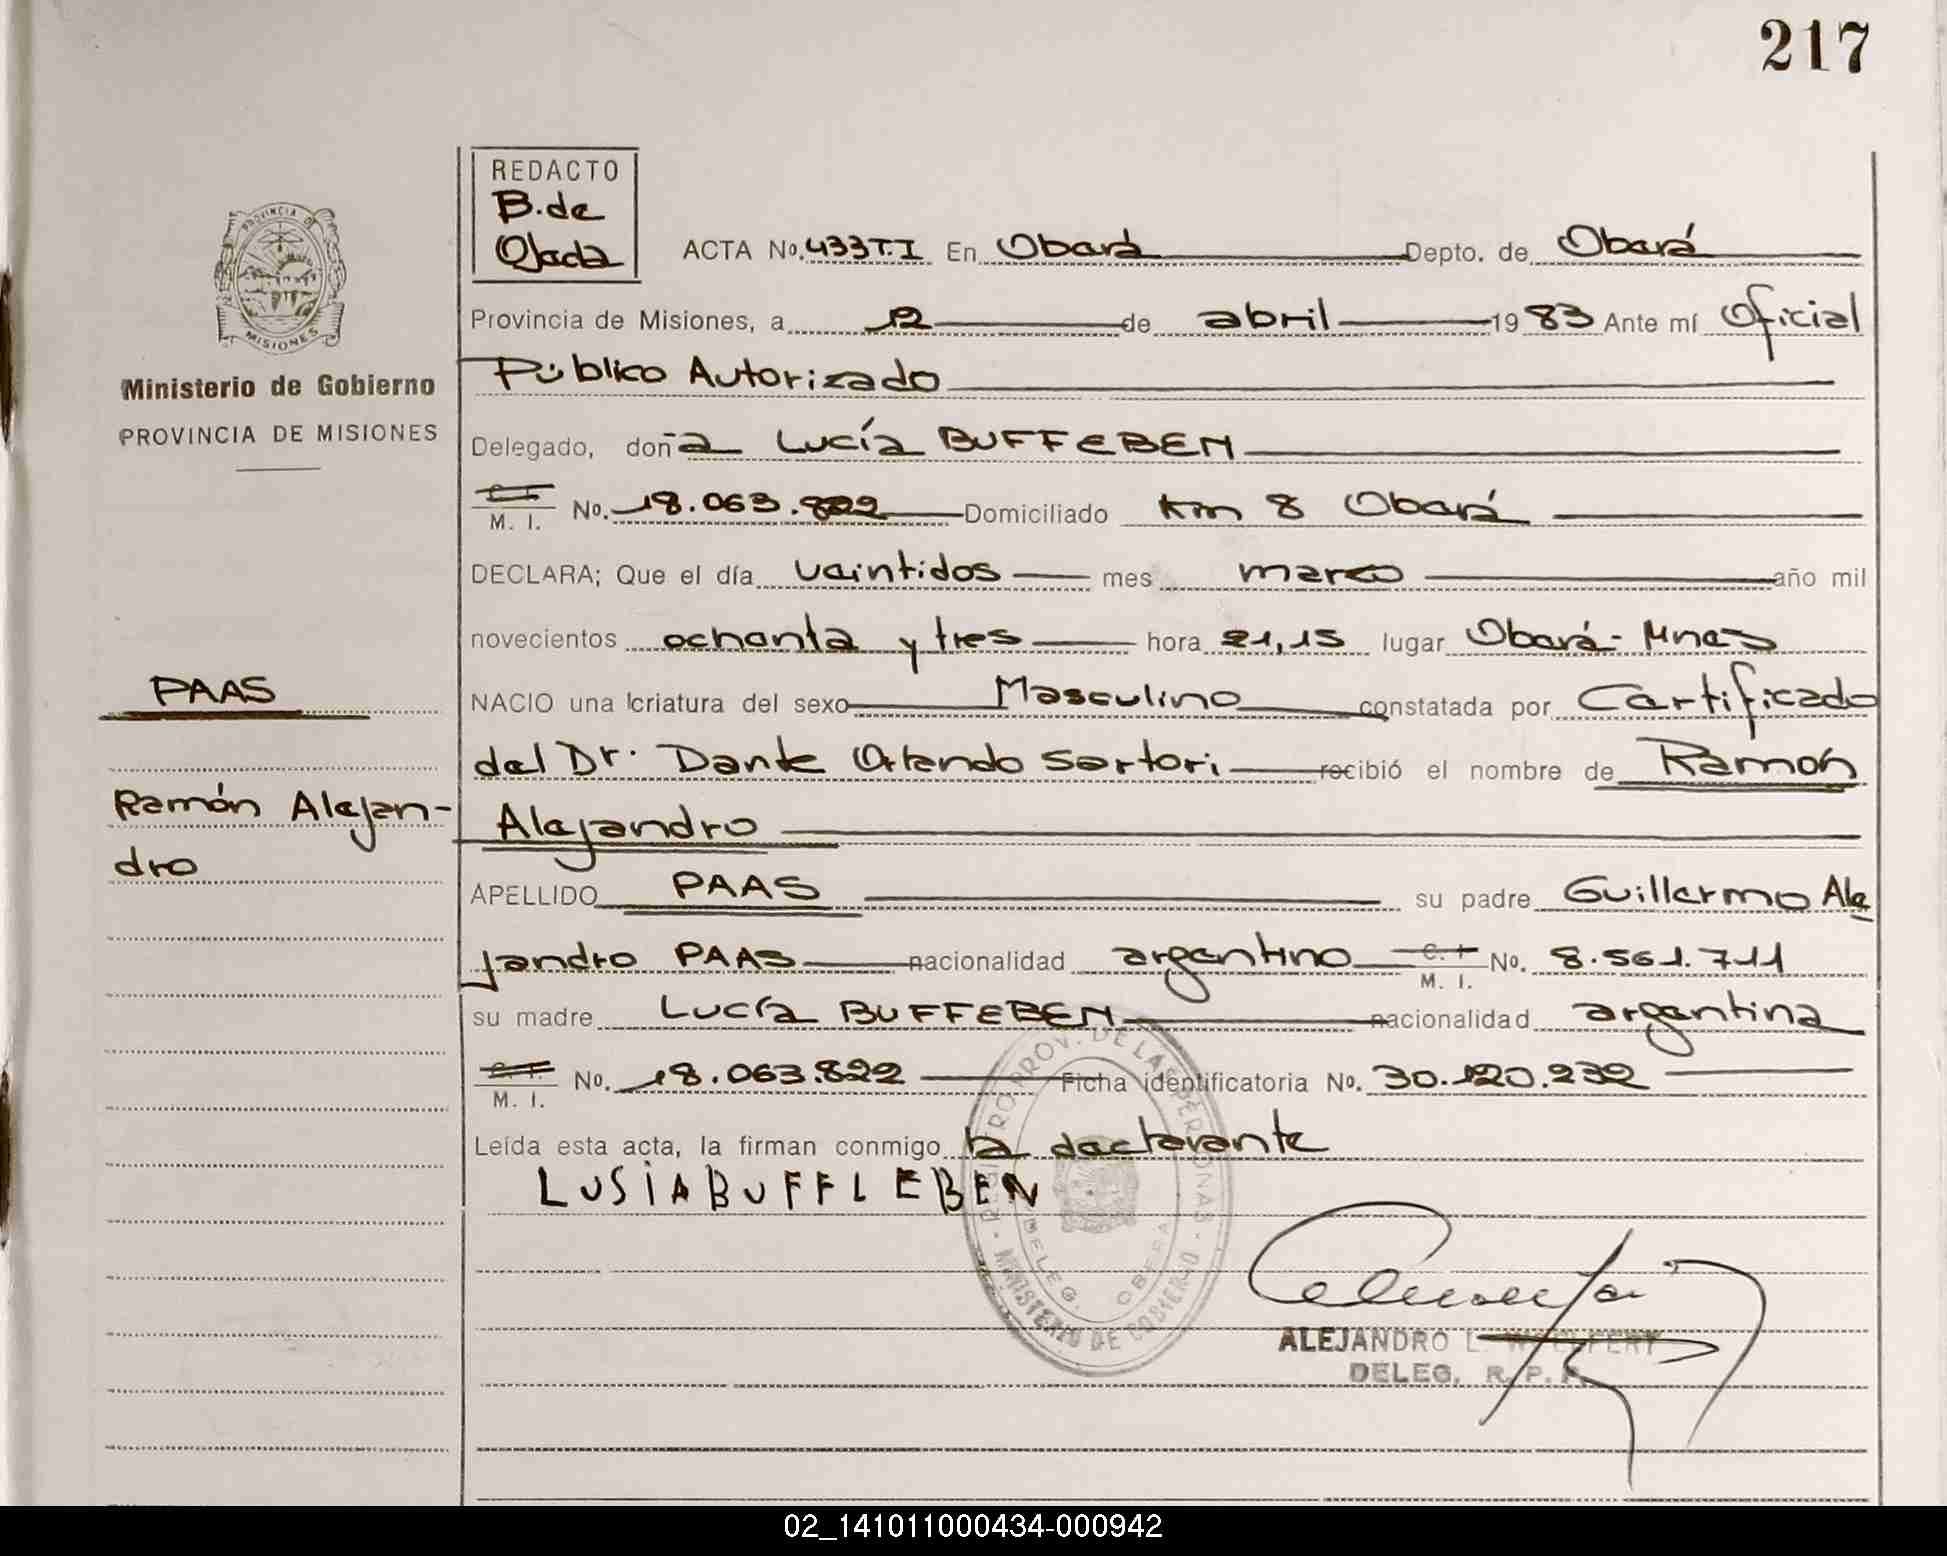 217
REDACTO
B. de
Ojeda
ACTA No. 433 T.I En Oberá Depto. de Oberá
Provincia de Misiones, a 12 de abril 1983 Ante mí Oficial
Público Autorizado
Delegado, doña Lucía BUFFEBEN
C. I.
M. I. No. 18.063.822 Domiciliado Km 8 Oberá
DECLARA; Que el día veintidos mes marzo año mil
novecientos ochenta y tres hora 21,15 lugar Oberá - Mnes
NACIO una criatura del sexo Masculino constatada por Certificado
del Dr. Dante Orlando Sartori recibió el nombre de Ramón
Alejandro
APELLIDO PAAS su padre Guillermo Ale
jandro PAAS nacionalidad argentino C. I. M. I. No. 8.561.711
su madre Lucía BUFFEBEN nacionalidad argentina
C. I.
M. I. No. 18.063.822 Ficha identificatoria No. 30.120.232
Leída esta acta, la firman conmigo la declarante
LUSIA BUFFLEBEN
PROVINCIA DE
MISIONES
Ministerio de Gobierno
PROVINCIA DE MISIONES
PAAS
Ramón Alejan-
dro
REGISTRO PROV. DE LAS PERSONAS - MINISTERIO DE GOBIERNO
DELEG. OBERA
ALEJANDRO L.
DELEG. R. P. P.
02_141011000434-000942